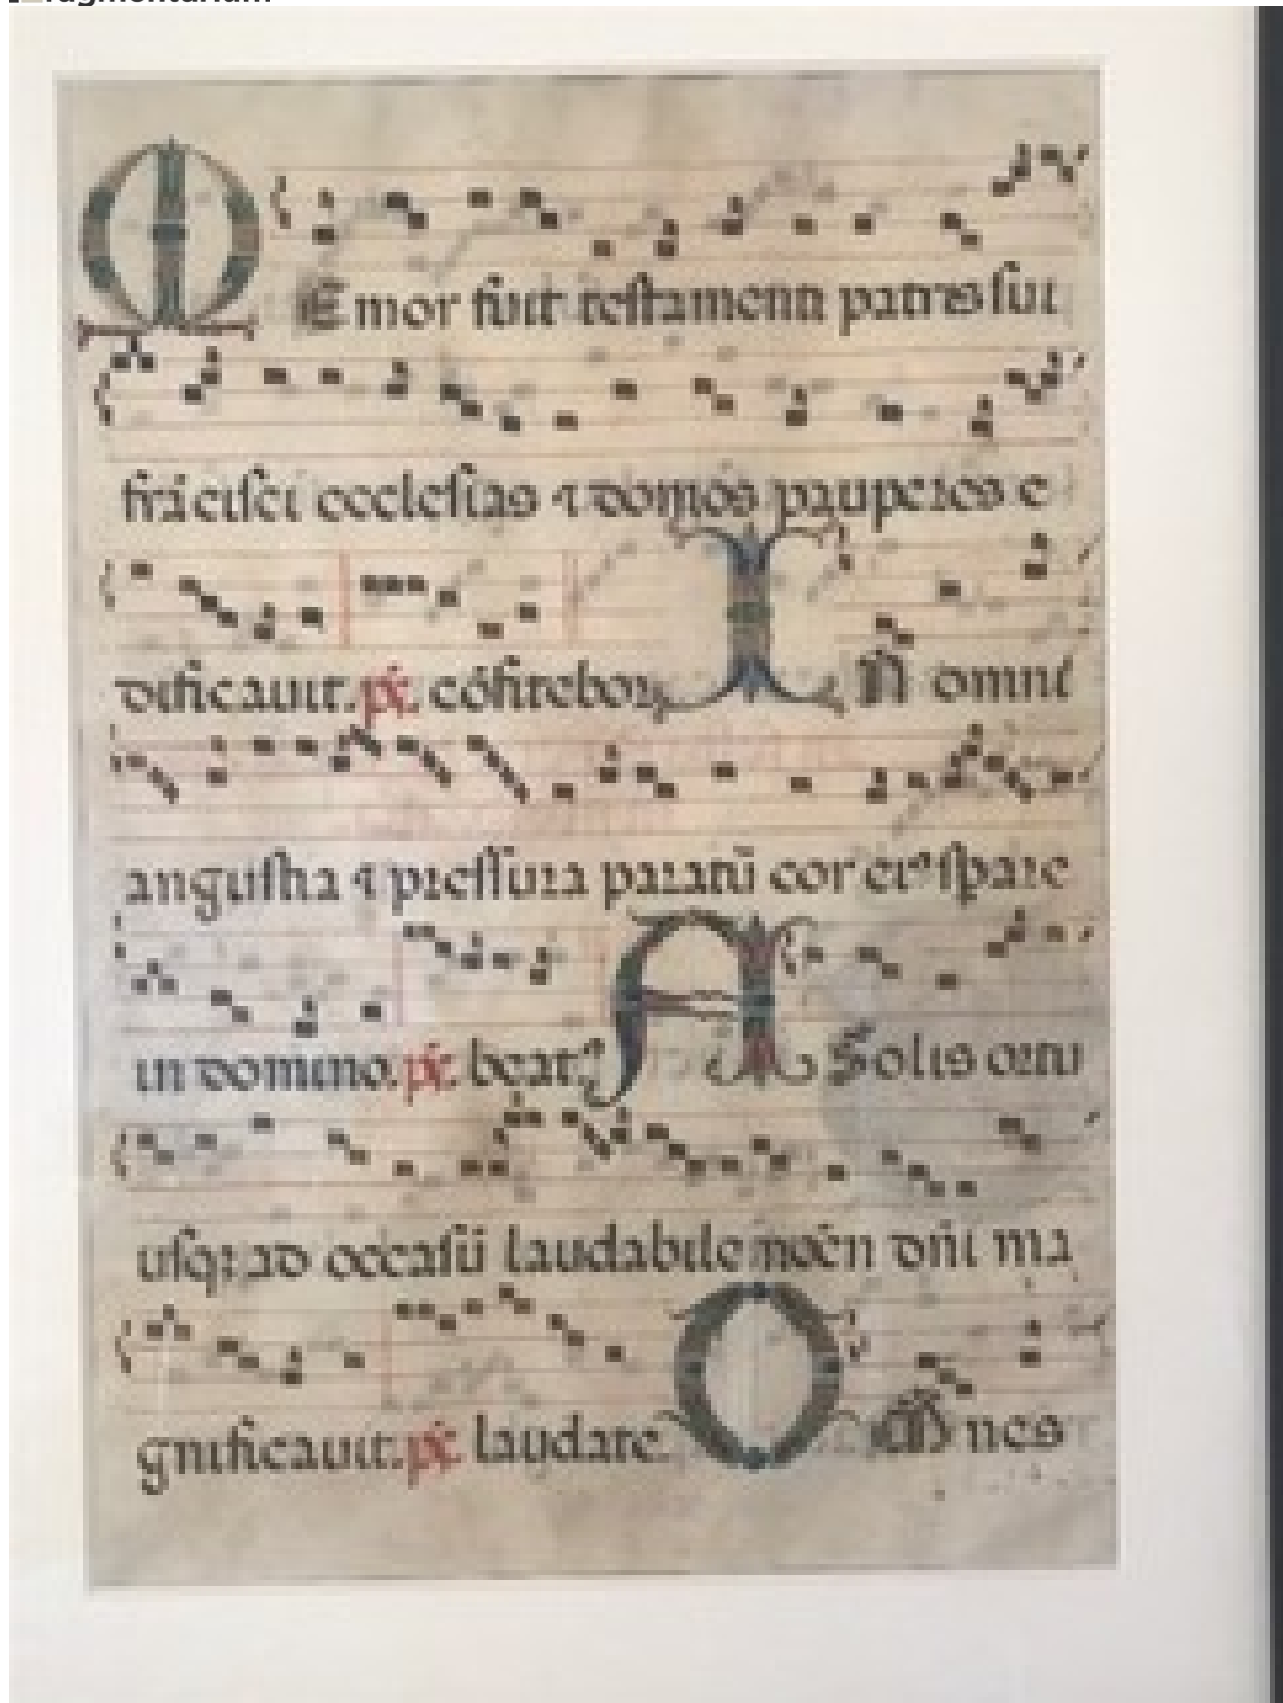 MEmor fuit testamenti patris sui
frācisci ecclesias ⁊ domos pauperes e
dificauit. ps. cōfitebor. IN omni
angustia ⁊ pressura paratū cor eiꝰ spare
in domino. ps. beatꝰ. A Solis ortu
usq; ad occasū laudabile nomēn dn̄i ma
gnificauit. ps. laudate. OMnes